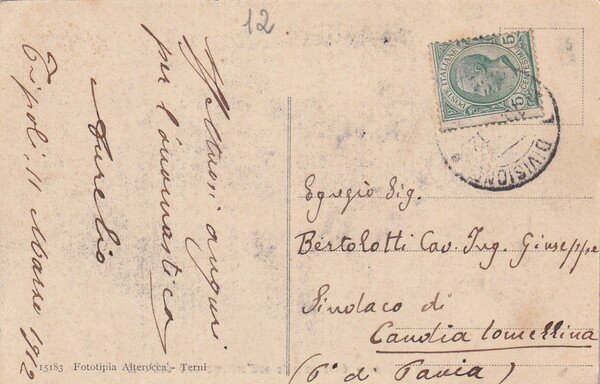 12
Affettuosi auguri
per l'onomastico
Aurelio
Tripoli, 11 Marzo 1912
POSTE ITALIANE
5
CENTESIMI
DIVISIONE
12
Egregio Sig.
Bertolotti Cav. Ing. Giuseppe
Sindaco di
Candia Lomellina
(Pa di Pavia)
15183 Fototipia Alterocca - Terni